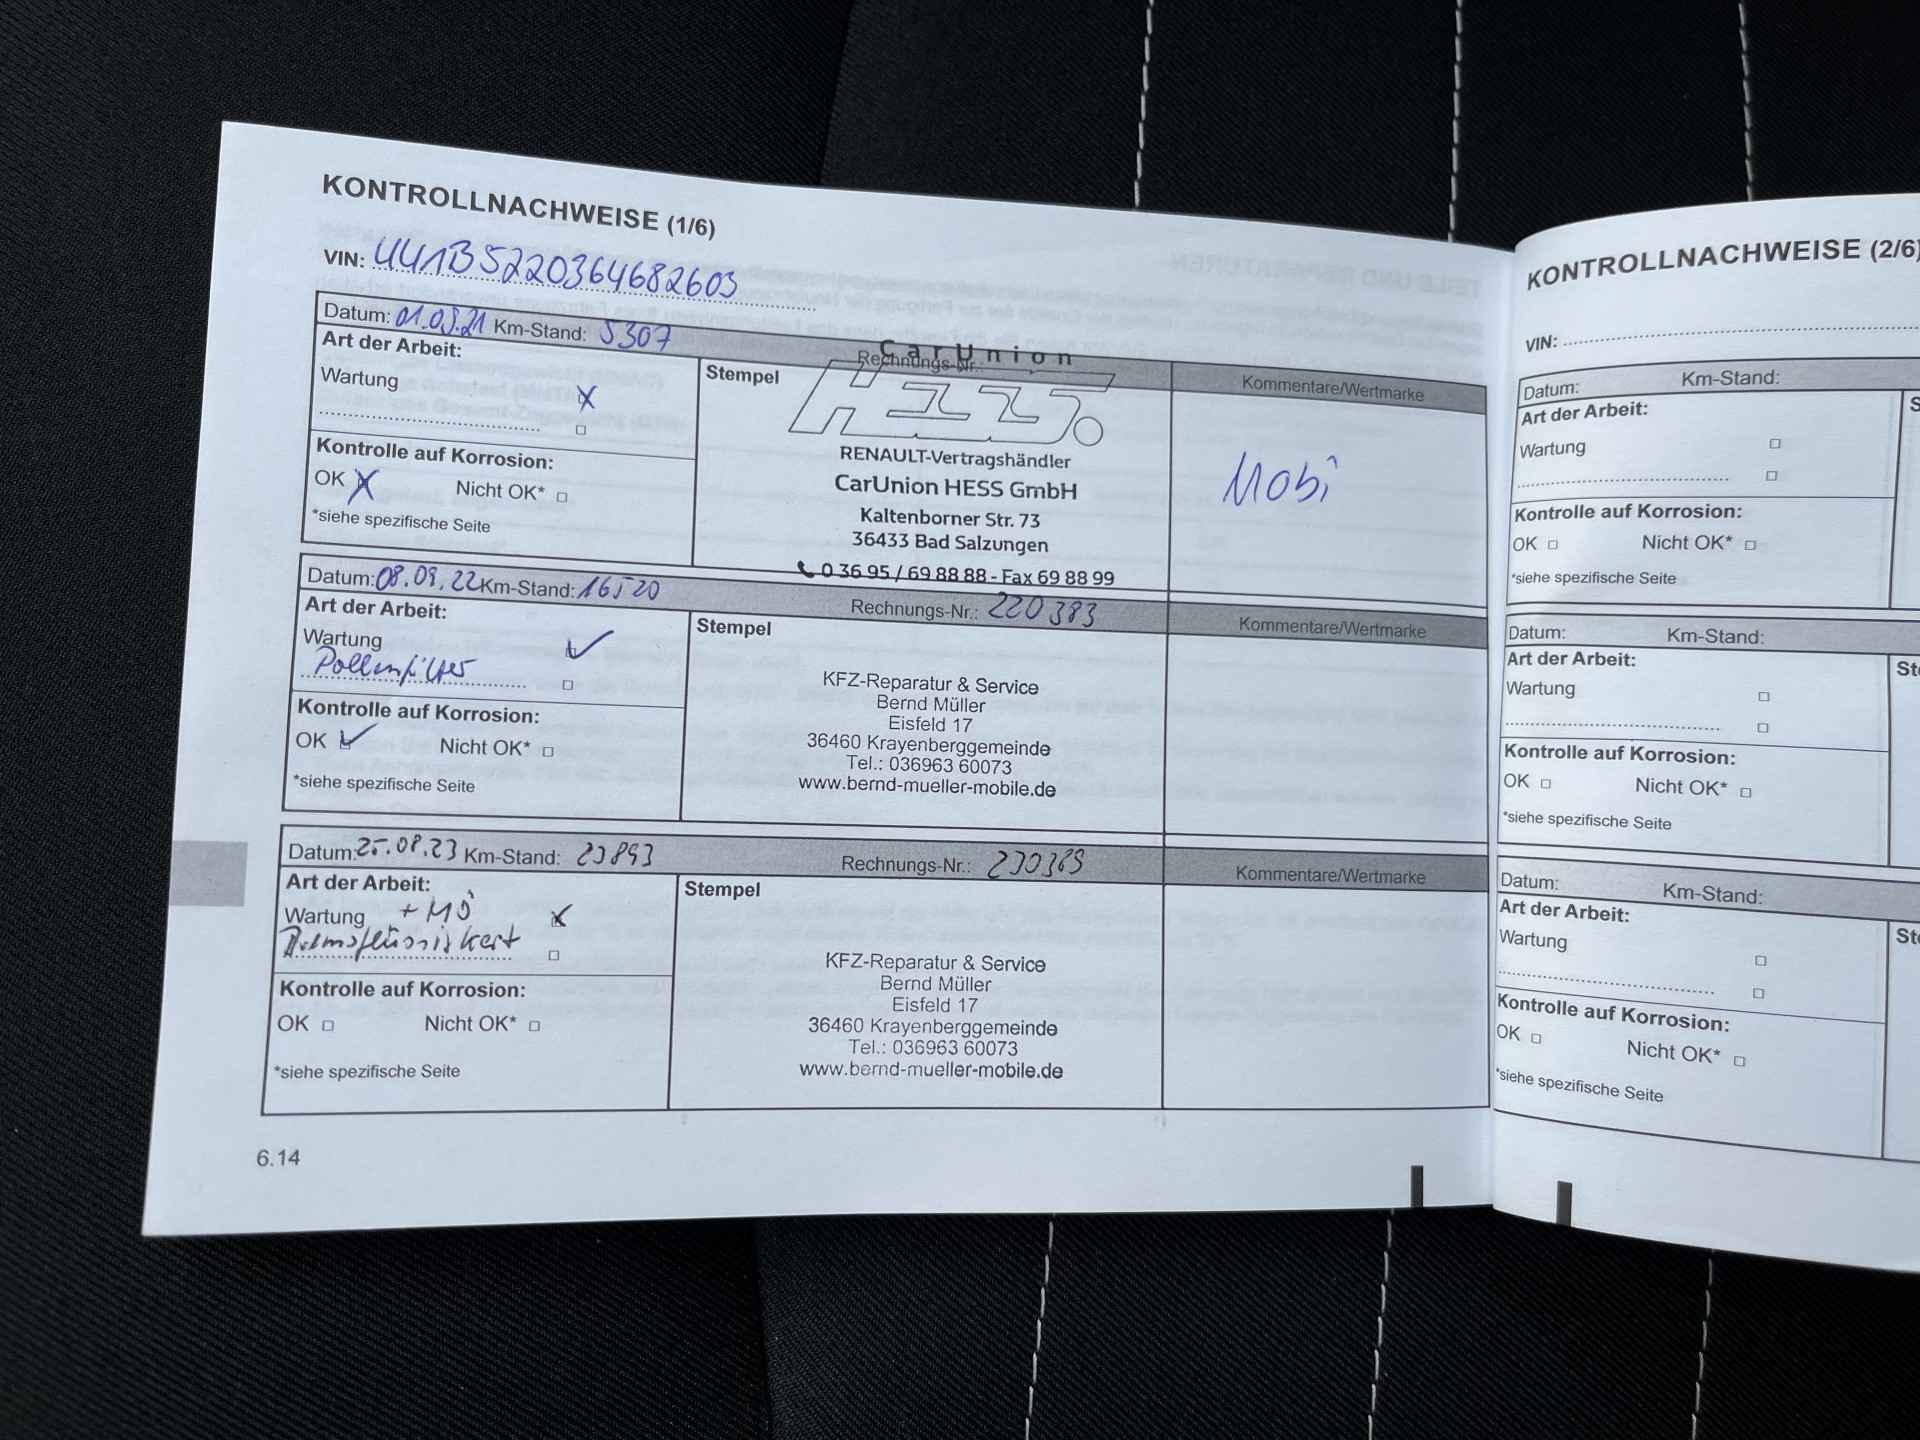 KONTROLLNACHWEISE (1/6)
VIN: UU1B5220364682603
Datum: 01.09.21 Km-Stand: 5307
Rechnungs-Nr.:
Kommentare/Wertmarke
Art der Arbeit:
Wartung X
Kontrolle auf Korrosion:
OK X Nicht OK*
*siehe spezifische Seite
Stempel
CarUnion
HESS.
RENAULT-Vertragshändler
CarUnion HESS GmbH
Kaltenborner Str. 73
36433 Bad Salzungen
0 36 95 / 69 88 88 - Fax 69 88 99
Mobi
Datum: 08.09.22 Km-Stand: 16520
Rechnungs-Nr.: 220383
Kommentare/Wertmarke
Art der Arbeit:
Wartung
Pollenfilter
Kontrolle auf Korrosion:
OK Nicht OK*
*siehe spezifische Seite
Stempel
KFZ-Reparatur & Service
Bernd Müller
Eisfeld 17
36460 Krayenberggemeinde
Tel.: 036963 60073
www.bernd-mueller-mobile.de
Datum: 25.08.23 Km-Stand: 23893
Rechnungs-Nr.: 230369
Kommentare/Wertmarke
Art der Arbeit:
Wartung + MÖ X
Kontrolle auf Korrosion:
OK Nicht OK*
*siehe spezifische Seite
Stempel
KFZ-Reparatur & Service
Bernd Müller
Eisfeld 17
36460 Krayenberggemeinde
Tel.: 036963 60073
www.bernd-mueller-mobile.de
6.14
KONTROLLNACHWEISE (2/6)
VIN:
Datum: Km-Stand:
Art der Arbeit:
Wartung
Kontrolle auf Korrosion:
OK Nicht OK*
*siehe spezifische Seite
Datum: Km-Stand:
Art der Arbeit:
Wartung
Kontrolle auf Korrosion:
OK Nicht OK*
*siehe spezifische Seite
Datum: Km-Stand:
Art der Arbeit:
Wartung
Kontrolle auf Korrosion:
OK Nicht OK*
*siehe spezifische Seite